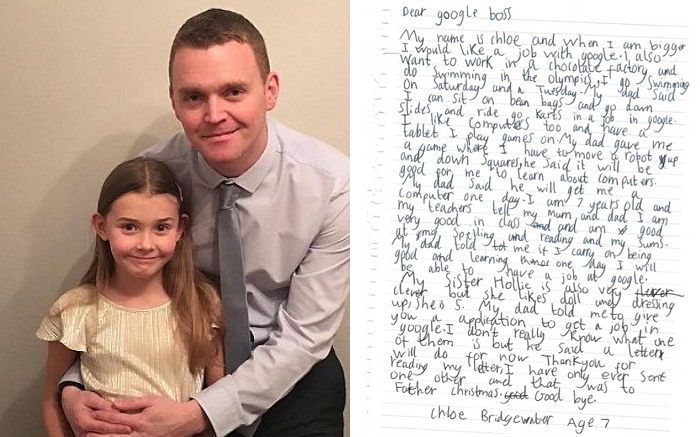 Dear google boss
My name is chloe and when I am bigger
I would like a job with google. I also
want to work in a chocolate factory and
do swimming in the olympics. I go swimming
on Saturday and a Tuesday. My dad said
I can sit on bean bags and go down
slides and ride go karts in a job in google.
I like computers too and have a
tablet I play games on. My dad gave me
a game where I have to move a robot up
and down squares, he said it will be
good for me to learn about computers.
My dad said he will get me a
computer one day. I am 7 years old and
my teachers tell my mum and dad I am
very good in class and am good
at my spelling and reading and my sums.
My dad told me if I carry on being
good and learning one day I will
be able to have a job at google.
My Sister Hollie is also very
clever but she likes doll and dressing
up, she is 5. My dad told me to give
you a application to get a job in
google. I don't really know what one
of them is but he said a letter
will do for now. Thankyou for
reading my letter, I have only ever sent
one other and that was to
Father christmas. Good bye.
Chloe Bridgewater Age 7